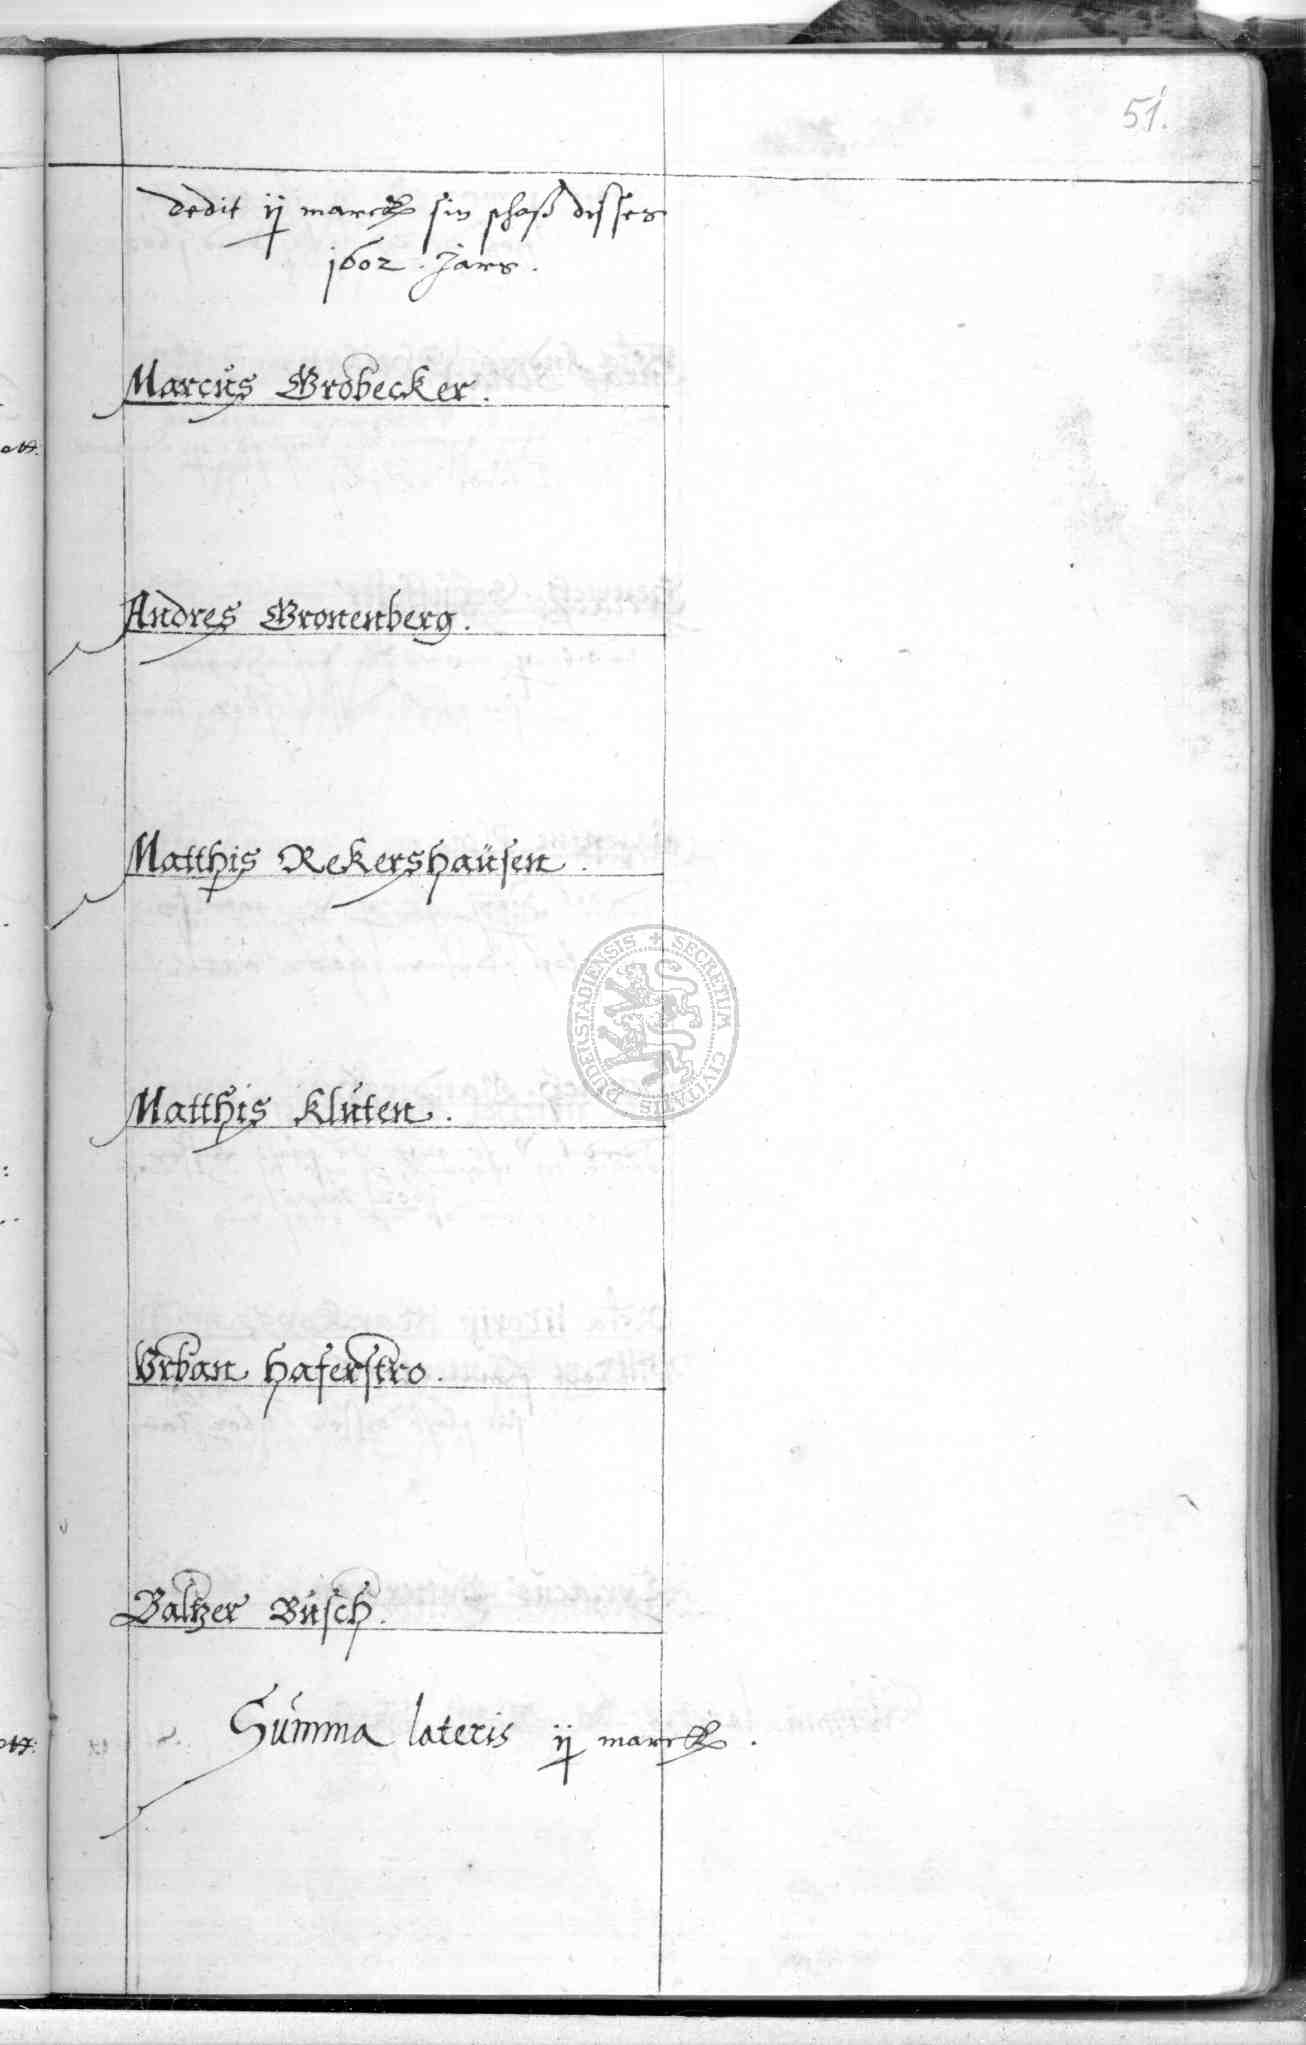 51.
dedit ij marck sin schoß disses
1602. Jars.
Marcus Grobecker.
Andres Gronenberg.
Matthis Rekershausen.
Matthis Kluten.
Vrban Haferstro.
Baltzer Busch.
Summa lateris ij marck.
SECRETUM CIVITATIS DUDERSTADIENSIS